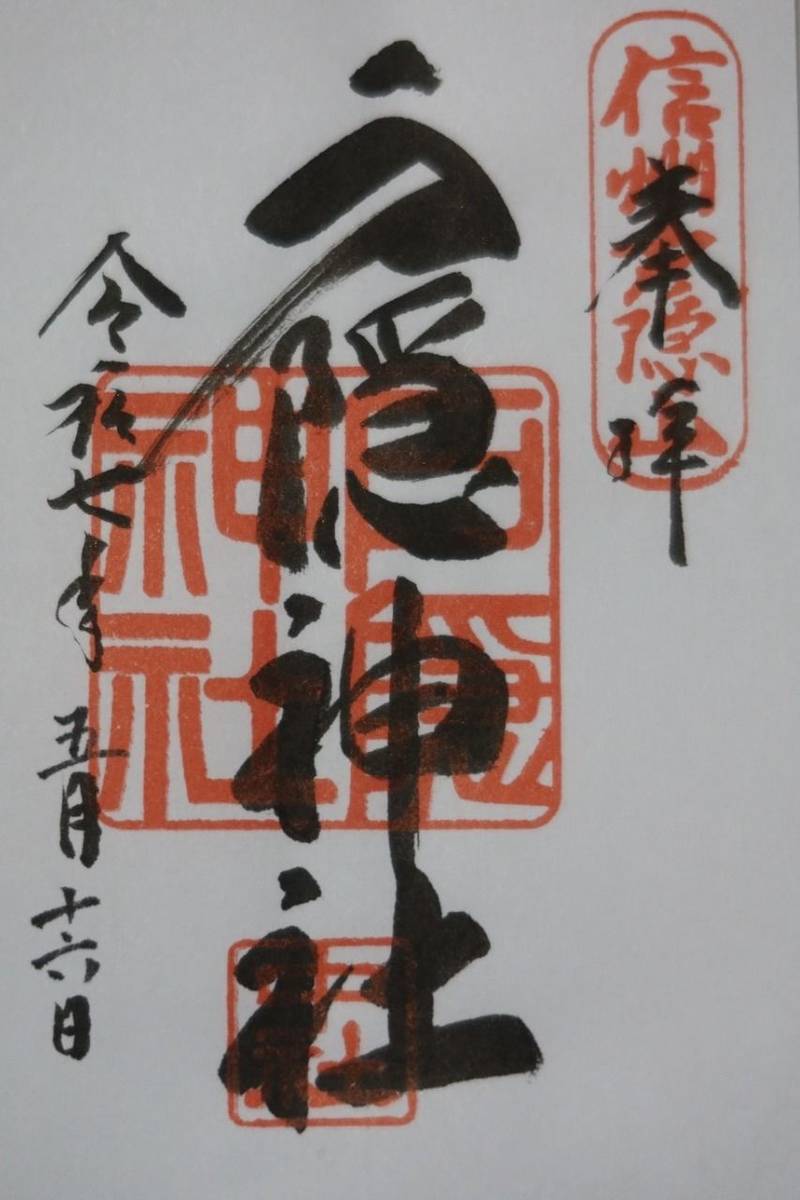 信州戸隠山
奉拝
戸隠神社
戸隠神社
令和七年 五月十六日